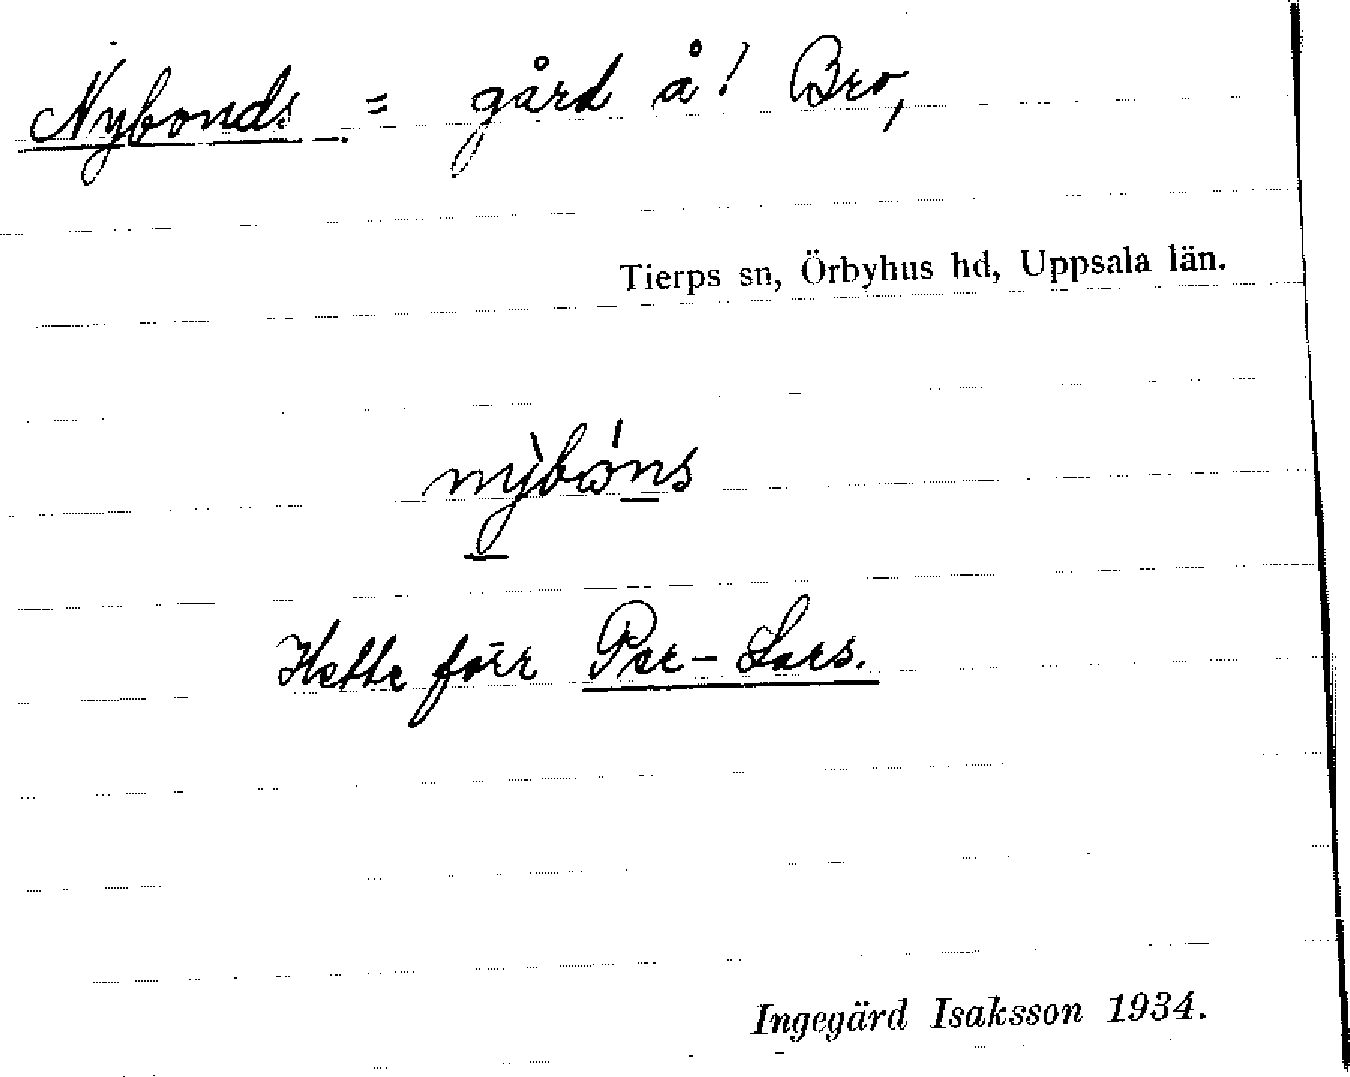 Nybonds = gård å! Bro,
Tierps sn, Örbyhus hd, Uppsala län.
nỳ̱bώṉs
Hette förr Per-Lars.
Ingegärd Isaksson 1934.